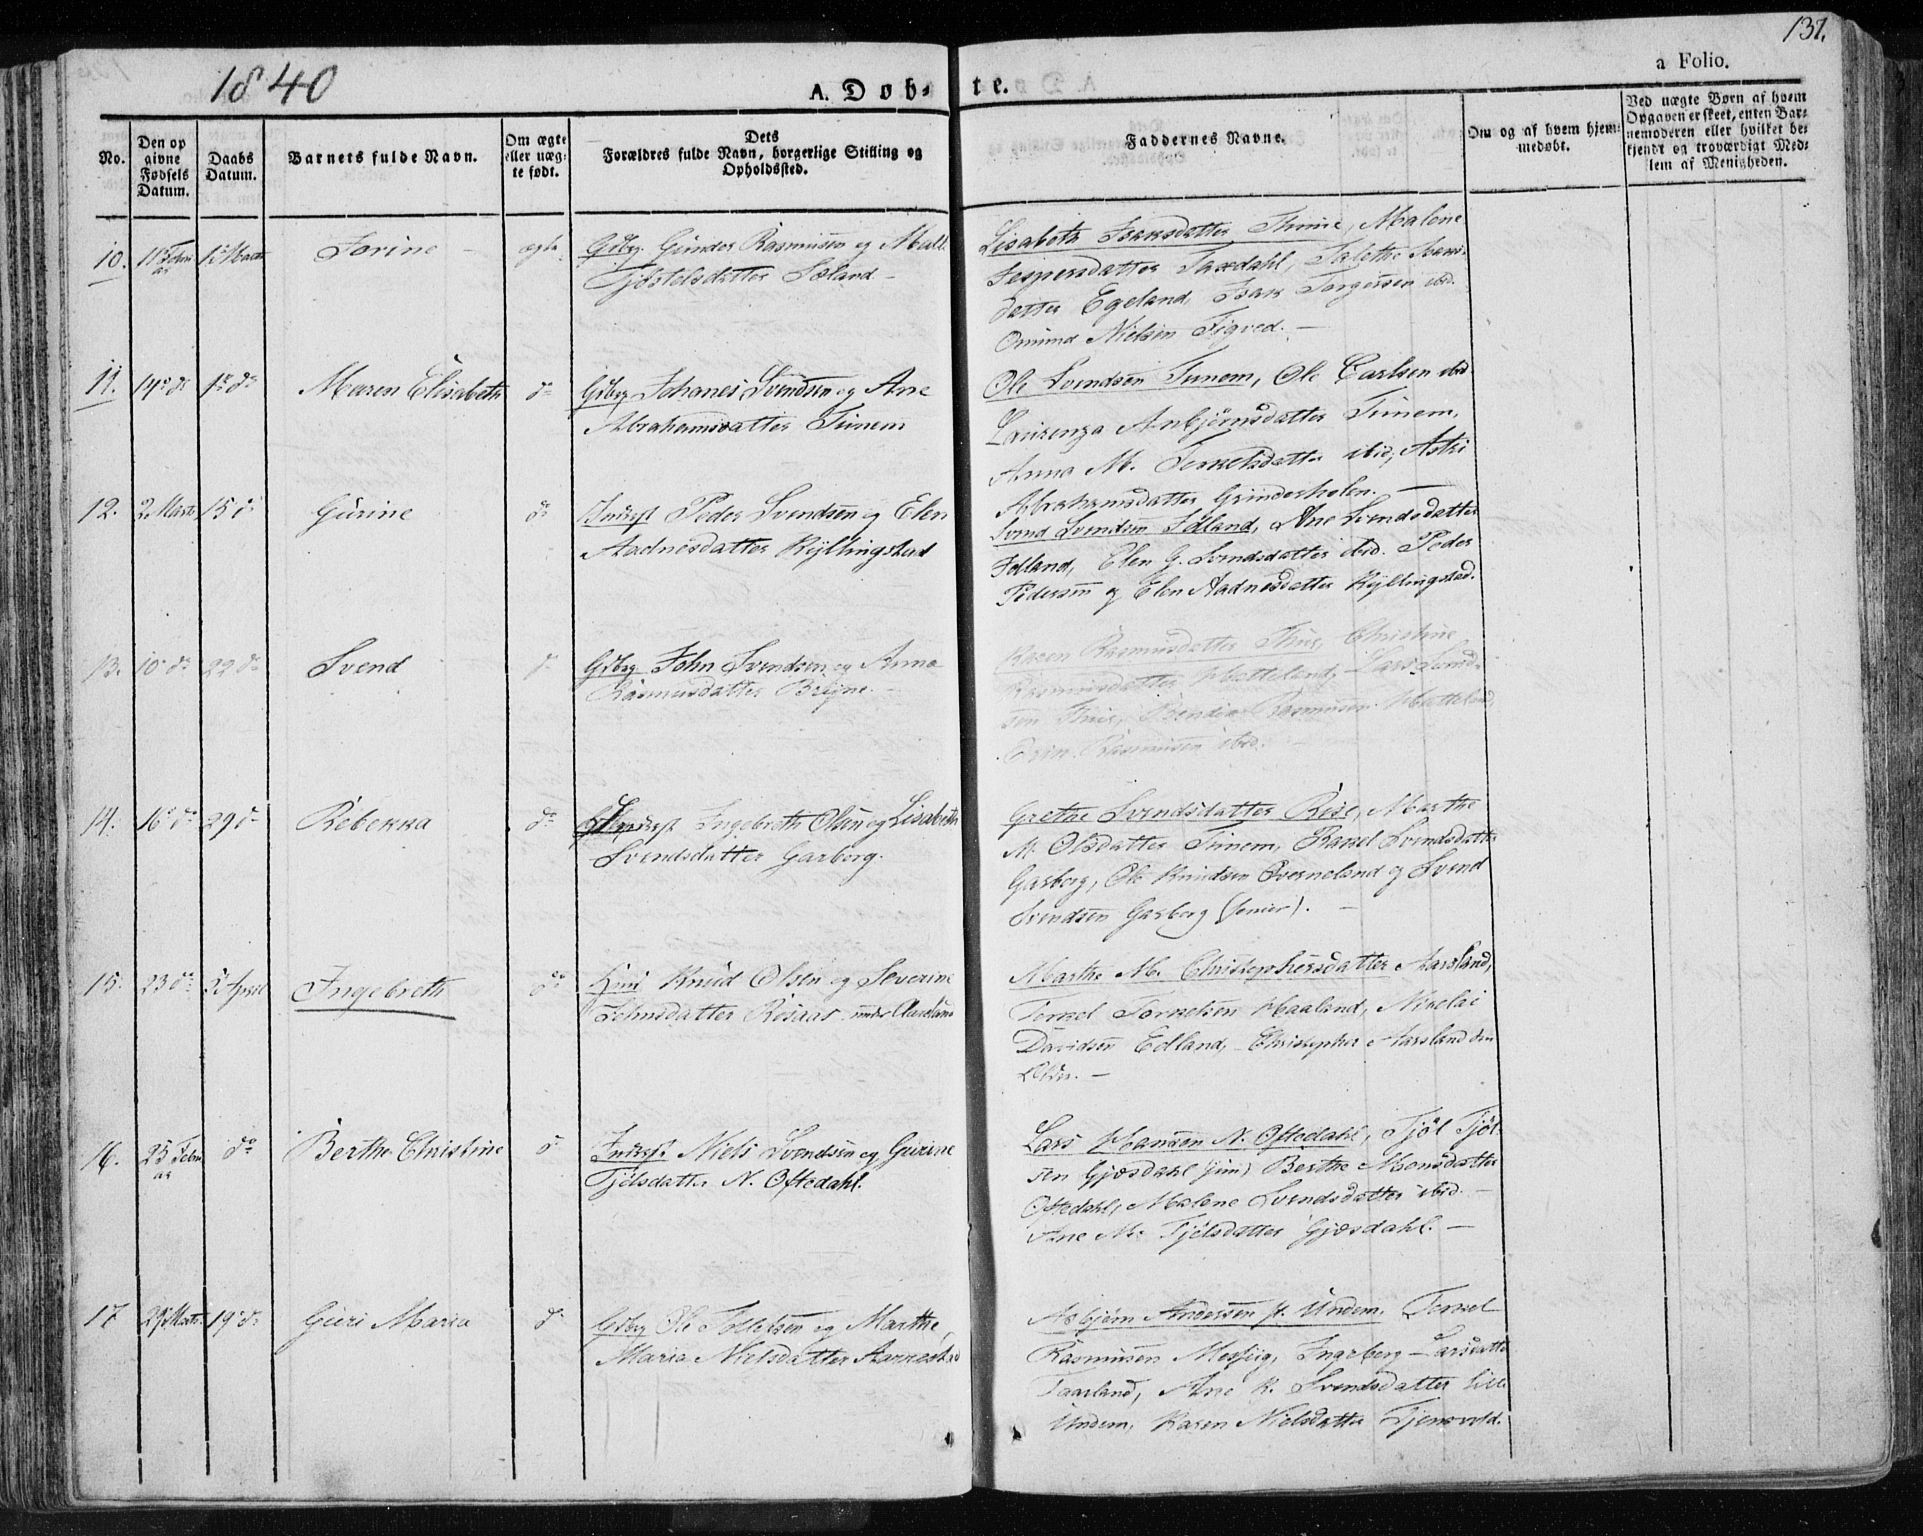 137.
1840
A. Døb-
te.
a Folio.
No.
Den op
givne
Fødsels
Datum.
Daabs
Datum.
Barnets fulde Navn.
Om ægte
eller uæg-
te født.
Dets
Forældres fulde Navn, borgerlige Stilling og
Opholdssted.
Faddernes Navne.
Om og af hvem hjem-
medøbt.
Ved uægte Børn af hvem
Opgaven er skeet, enten Bar-
nemoderen eller hvilket be-
kjendt og troværdigt Med-
lem af Menigheden.
10.
1 Marts
Jorine
ægte
Gdbrg Gunder Rasmussen og Mall.
Tjöstelsdatter Sæland
Lisabeth Isaksdatter Thime, Malene
Jespersdatter Taxdahl, Talette
datter Egeland, Isak Torgersen ibd.
Omund Nielsen Tigved.
11.
14 ds
1 ds
Maren Elisabeth
do
Gdbrg Johanes Svendsen og Ane
Abrahamsdatter Tunem
Ole Svendsen Tunem, Ole Carlsen ibd
Laurenza Anbjörnsdatter Tunem,
Anna M. Torkelsdatter ibid, Astri
Abrahamsdatter Grinderholen.
12.
2 Marts
15 ds
Gurine
do
Inderst Peder Svendsen og Elen
Aadnesdatter Kyllingstad
Svend Svendsen Edland, Ane Svendsdatter
Edland, Elen G. Svendsdatter ibd. Peder
Pedersen og Elen Aadnesdatter Kyllingstad.
13.
10 ds
22 ds
Svend
d
Gdbrg John Svendsen og Anna
Rasmusdatter Bryne.
Karen Rasmusdatter Thue, Christine
Rasmusdatter Hatteland, Lars Svend-
sen Thue, Rasmusen Hatteland,
Rasmusen ibd.
14.
16 ds
29 ds
Rebekka
do
Inderst Ingebreth Olsen og Lisabeth
Svendsdatter Garborg.
Grethe Svendsdatter Rise, Marthe
M. Olsdatter Tunem, Rakel Svendsdatter
Garborg, Ole Knudsen Qverneland og Svend
Svendsen Garborg (senier).
15.
23 ds
5 April
Ingebreth
do
Huus Knud Olsen og Severine
Johnsdatter Rosaas under Aarsland
Marthe M. Christophersdatter Aarsland,
Torkel Torkelsen Haaland, Nikolai
Davidsen Edland, Christopher Aarsland den
Elder.
16.
25 Febru
ar
do
Berthe Christine
d
Inderst Niels Svendsen og Gurine
Tjölsdatter N. Oftedahl.
Lars Hansen N. Oftedahl, Tjöl Tjöl-
sen Gjesdahl (jun) Berthe Monsdatter
Oftedahl, Malene Svendsdatter ibd.
Ane M. Tjölsdatter Gjesdahl.
17
29 Marts
19 ds
Guri Maria
d
Gdbrg Ole Tollefsen og Marthe
Maria Nielsdatter Aarrestad
Asbjörn Andersen st. Undem, Torkel
Rasmusen Mossig, Ingeborg Larsdatter
Taarland, Ane K. Svendsdatter lille
Undem, Karen Nielsdatter Tjensvold.